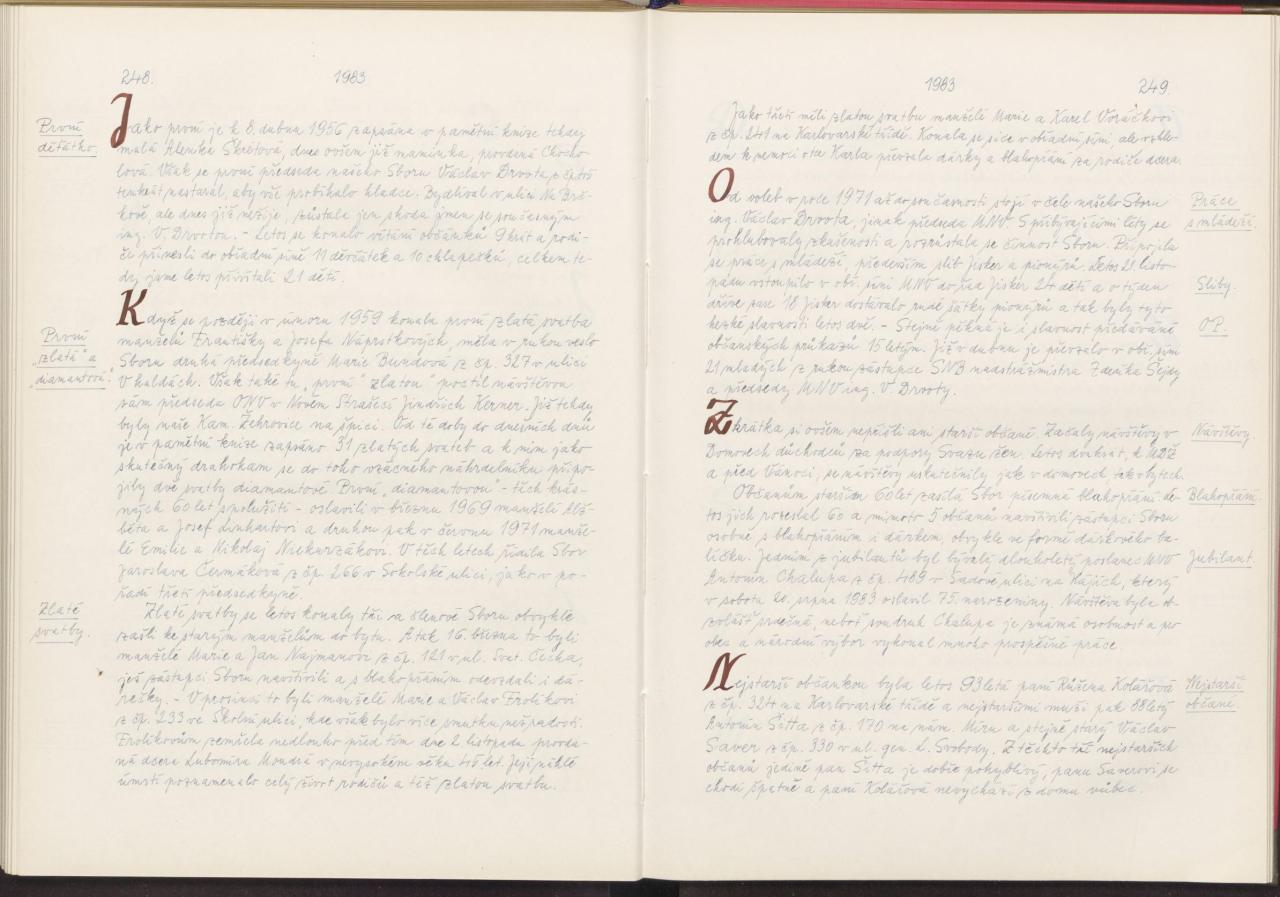 248.
1983
První
děťátko.
Jako první je k 8. dubnu 1956 zapsána v pamětní knize tehdy
malá Alenka Škrétová, dnes ovšem již maminka, provdaná Chocho-
lová. Však se první předseda našeho Sboru Václav Drvota z čp.
tenkrát nastaral, aby vše probíhalo hladce. Bydlíval v ulici Na Brč-
kově, ale dnes již nežije, zůstala jen shoda jmen se současným
ing. V. Drvotou. - Letos se konalo vítání občánků 9krát a rodi-
če přinesli do obřadní síně 11 děvčátek a 10 chlapečků, celkem te-
dy jsme letos přivítali 21 dětí.
První
„zlatá" a
„diamantová."
Když se později v únoru 1959 konala první zlatá svatba
manželů Františky a Josefa Náprstkových, měla v rukou veslo
Sboru druhá předsedkyně Marie Bundová z čp. 327 v ulici
V haldách. Však také tu „první" zlatou poctil návštěvou
sám předseda ONV v Novém Strašecí Jindřich Kerner. Již tehdy
byly naše Kam. Žehrovice na špici. Od té doby do dnešních dnů
je v pamětní knize zapsáno 31 zlatých svateb a k nim jako
skutečný drahokam se do toho vzácného náhrdelníku připo-
jily dvě svatby diamantové. První „diamantovou" - těch krás-
ných 60 let spolužití - oslavili v březnu 1969 manželé Alž-
běta a Josef Linhartovi a druhou pak v červnu 1971 manže-
lé Emilie a Mikolaj Niekurzákovi. V těch letech řídila Sbor
Jaroslava Čermáková z čp. 266 v Sokolské ulici, jako v po-
řadí třetí předsedkyně.
Zlaté
svatby.
Zlaté svatby se letos konaly tři a členové Sboru obvykle
zašli ke starým manželům do bytu. A tak 16. března to byli
manželé Marie a Jan Najmanovi z čp. 121 v ul. Svat. Čecha,
jež zástupci Sboru navštívili a s blahopřáním odevzdali i dá-
rečky. - V prosinci to byli manželé Marie a Václav Frolíkovi
z čp. 233 ve Školní ulici, kde však bylo více smutku než radosti.
Frolíkovům zemřela nedlouho před tím dne 2. listopadu provda-
ná dcera Lubomíra Mondra v nevysokém věku 46 let. Její náhlé
úmrtí poznamenalo celý život rodičů a též zlatou svatbu.
1983
249.
Jako třetí měli zlatou svatbu manželé Marie a Karel Voráčkovi
z čp. 241 na Karlovarské třídě. Konala se sice v obřadní síni, ale vzhle-
dem k nemoci otce Karla převzala dárky a blahopřání za rodiče dcera.
Práce
s mládeží.
Od voleb v roce 1971 až do současnosti stojí v čele našeho Sboru
ing. Václav Drvota, jinak předseda MNV. S přibývajícími léty se
prohlubovaly zkušenosti a rozrůstala se činnost Sboru. Připojila
se práce s mládeží, především slib Jisker a pionýrů. Letos 21. listo-
padu vstoupilo v obř. síni MNV do řad Jisker 24 dětí a o týden
dříve zase 18 Jisker dostávalo rudé šátky pionýrů a tak byly tyto
hezké slavnosti letos dvě. - Stejně pěkná je i slavnost předávání
občanských průkazů 15letým. Již v dubnu je převzalo v obř. síni
21 mladých z rukou zástupce SNB nadstrážmistra Zdeňka Šejdy
a předsedy MNV ing. V. Drvoty.
Sliby.
OP.
Zkrátka si ovšem nepřišli ani starší občané. Začaly návštěvy v
Domovech důchodců za podpory Svazu žen. Letos dvakrát, k MDŽ
a před Vánoci, se návštěvy uskutečnily jak v domovech, tak v bytech.
Návštěvy.
Občanům starším 60 let zasílá Sbor písemná blahopřání. Le-
tos jich rozeslal 60 a mimoto 5 občanů navštívili zástupci Sboru
osobně s blahopřáním i dárkem, obvykle ve formě dárkového ba-
líčku. Jedním z jubilantů byl bývalý dlouholetý poslanec MNV
Antonín Chalupa z čp. 489 v Sadové ulici na Hájích, který
v sobotu 20. srpna 1983 oslavil 75. narozeniny. Návštěva byla ob-
zvlášť srdečná, neboť soudruh Chalupa je známá osobnost a pro
obec a národní výbor vykonal mnoho prospěšné práce.
Blahopřání.
Jubilant.
Nejstarší občankou byla letos 93letá paní Růžena Kolářová
z čp. 324 na Karlovarské třídě a nejstaršími muži pak 88letý
Antonín Šitta z čp. 170 na nám. Míru a stejně starý Václav
Saver z čp. 330 v ul. gen. L. Svobody. Z těchto tří nejstarších
občanů jedině pan Šitta je dobře pohyblivý, panu Saverovi se
chodí špatně a paní Kolářová nevychází z domu vůbec.
Nejstarší
občané.